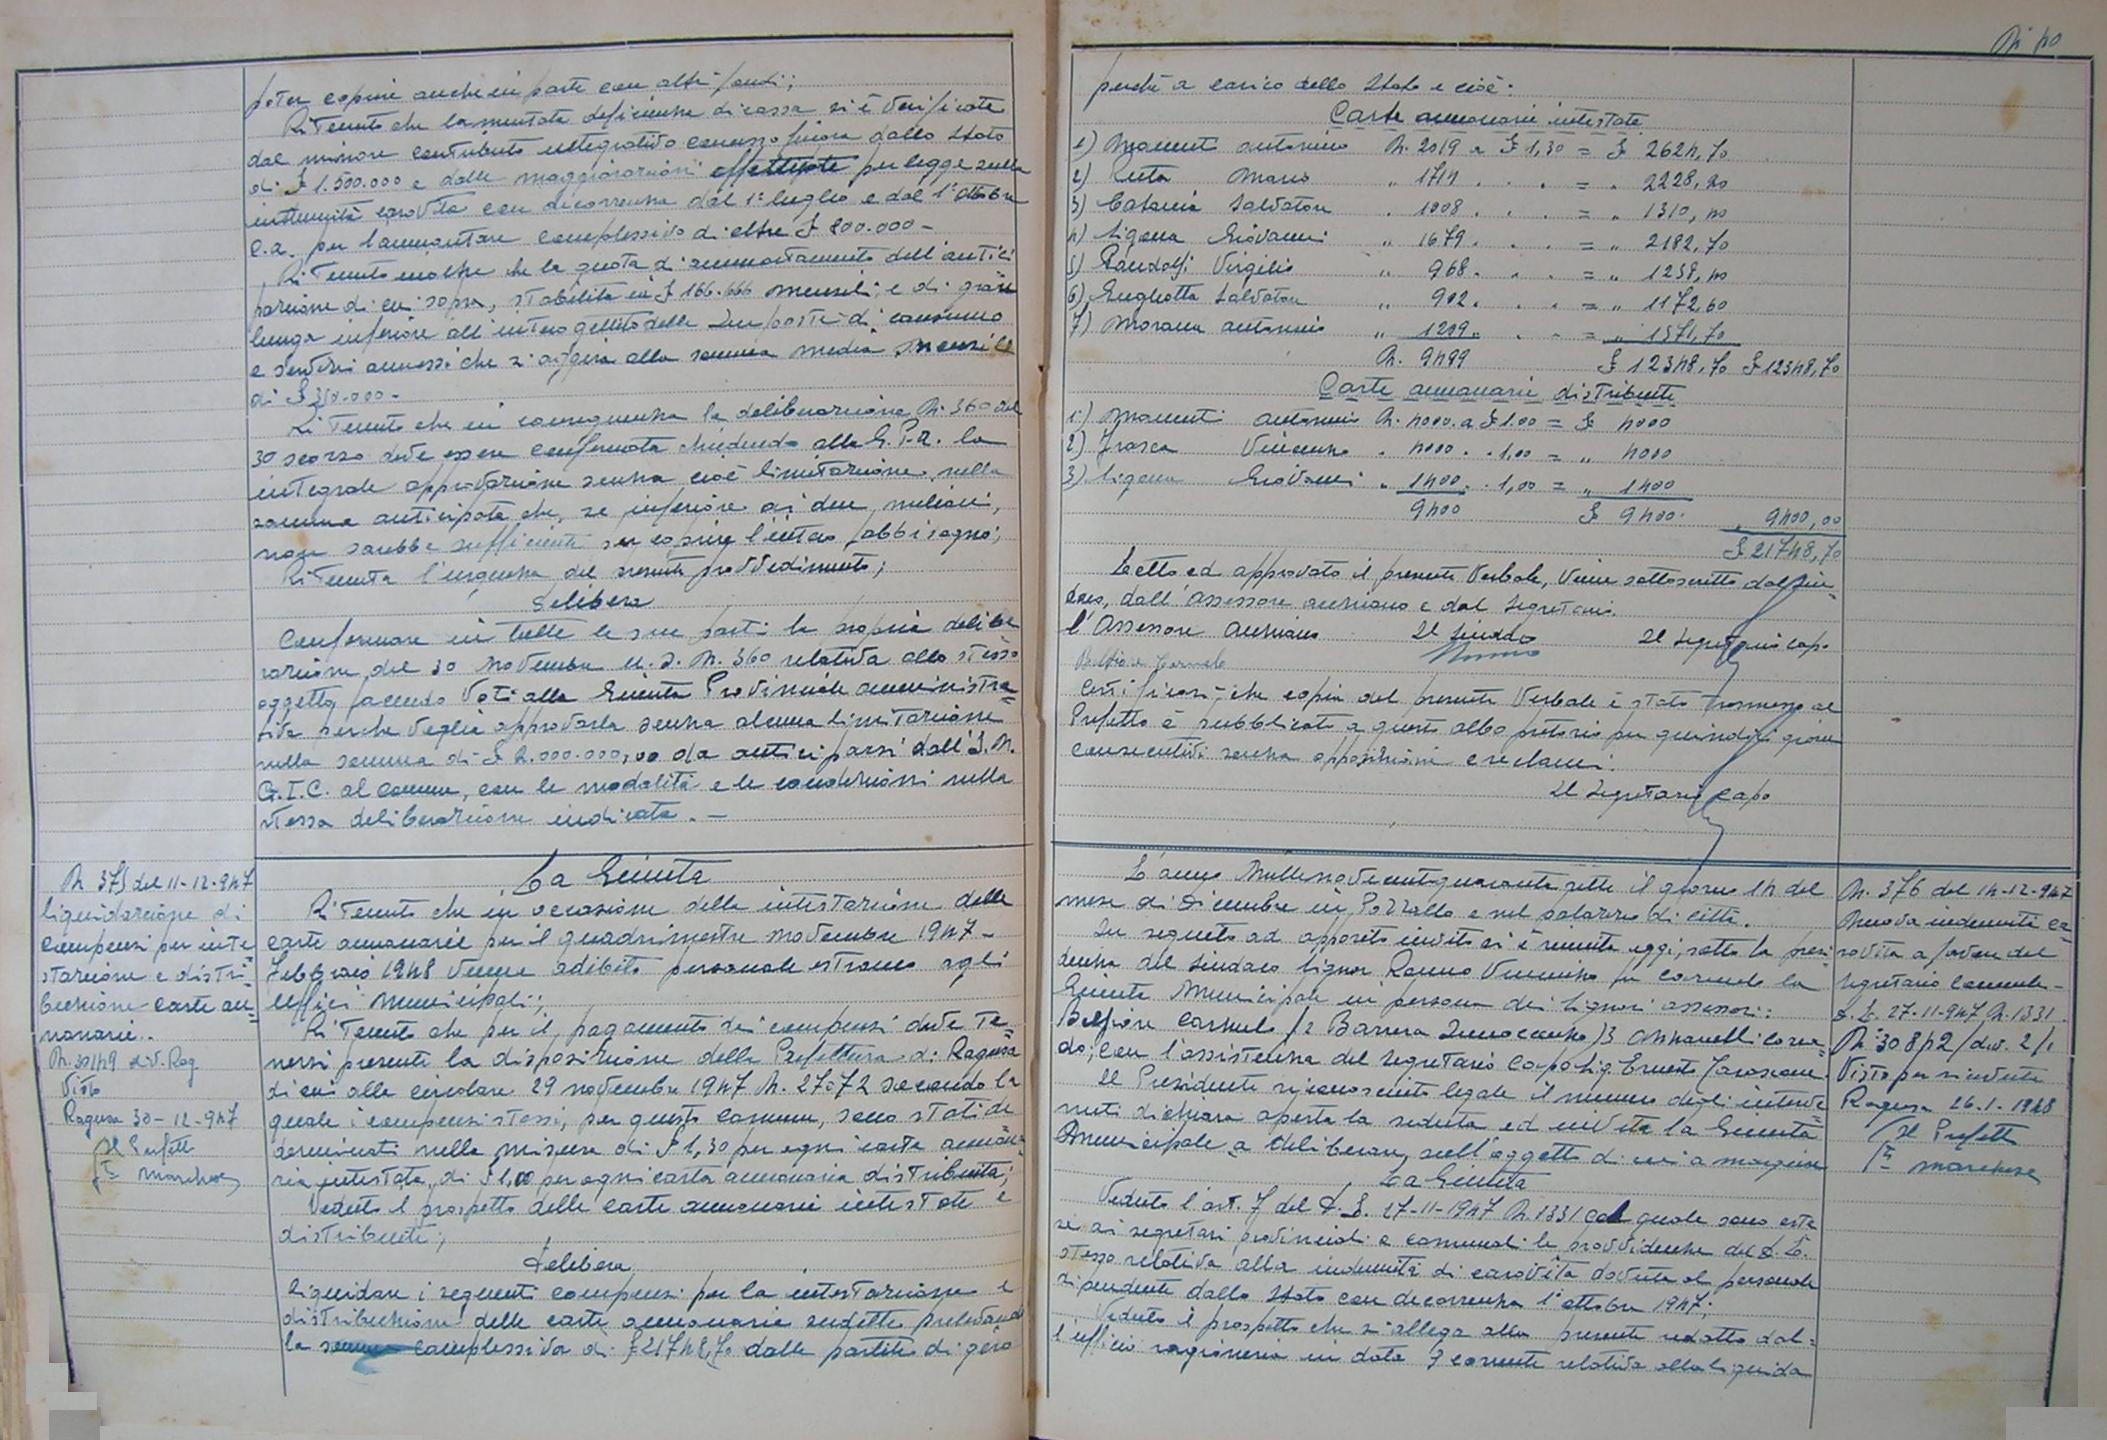 poter coprire anche in parte con altri fondi;
Ritenuto che lamentata deficienza di cassa si è verificata
dal minore contributo integrativo concesso finora dallo Stato
di £ 1.500.000 e dalle maggiorazioni effettuate per legge sulla
indennità carovita con decorrenza dal 1° luglio e dal 1° ottobre
c.a. per l'ammontare complessivo di oltre £ 800.000 -
Ritenuto inoltre che la quota di ammortamento dell'antici
pazione di cui sopra, stabilita in £ 166.666 mensili, e di gran
lunga inferiore all'intero gettito delle Imposte di consumo
e servizi annessi che si aggira alla somma media mensile
di £ 350.000 -
Ritenuto che in conseguenza la deliberazione N. 360 del
30 scorso deve essere confermata chiedendo alla G.P.A. la
integrale approvazione senza cioè limitazione nella
somma anticipata che, se inferiore ai due milioni,
non sarebbe sufficiente per coprire l'intero fabbisogno;
Ritenuta l'urgenza del presente provvedimento;
Delibera
Confermare in tutte le sue parti la propria delibe
razione del 30 Novembre u.s. N. 360 relativa allo stesso
oggetto facendo voti alla Giunta Provinciale amministra=
tiva perche voglia approvarla senza alcuna limitazione
nella somma di £ 2.000.000,00 da anticiparsi dall'I.N.
G.I.C. al comune, con le modalità e le condizioni nella
stessa deliberazione indicate. -
N. 375 del 11-12-947
liquidazione di
compensi per inte
stazione e distri=
buzione carte an=
nonarie..
N. 30149 div. Rag
Visto
Ragusa 30-12-947
Il Prefetto
Fto Marchese
La Giunta
Ritenuto che in occasione della intestazione delle
carte annonarie per il quadrimestre novembre 1947 -
Febbraio 1948 venne adibito personale estraneo agli
Uffici Municipali;
Ritenuto che per il pagamento dei compensi deve te=
nersi presente la disposizione della Prefettura di Ragusa
di cui alla circolare 29 novembre 1947 N. 27072 secondo la
quale i compensi stessi, per questo comune, sono stati de
terminati nella misura di £ 1,30 per ogni carta annona=
ria intestata, di £ 1,00 per ogni carta annonaria distribuita;
Veduto il prospetto delle carte annonarie intestate e
distribuite;
Delibera
Liquidare i seguenti compensi per la intestazione e
distribuzione delle carte annonarie suddette prelevando
la somma complessiva di £ 21748,70 dalle partite di giro
N° 40
perchè a carico dello Stato e cioè:
Carte annonarie intestate
1) Monenti antonino N. 2019 a £ 1,30 = £ 2624,70
2) Ruta Mario " 1714 . . = " 2228,20
3) Catania Salvatore " 1008 . . = " 1310,40
4) Ligona Giovanni " 1679 . . = " 2182,70
5) Randolfi Virgilio " 968 . . = " 1258,40
6) Gugliotta Salvatore " 902 . . = " 1172,60
7) Morana antonino " 1209 . . = " 1571,70
N. 9499 £ 12348,70 £ 12348,70
Carte annonarie distribuite
1) Monenti antonino N. 4000 a £ 1.00 = £ 4000
2) Frasca Vincenzo . 4000 . . 1,00 = " 4000
3) Ligona Giovanni " 1400 . . 1,00 = " 1400
9400 £ 9400. " 9400,00
£ 21748,70
Letto ed approvato il presente Verbale, viene sottoscritto dal Sin=
daco, dall'Assessore anziano e dal Segretario.
l'Assessore Anziano Il Sindaco Il Segretario capo
Belfiore Carmelo
Certificasi che copia del presente Verbale è stato trasmesso al
Prefetto è pubblicato a questo albo pretorio per quindici giorni
consecutivi senza opposizioni e reclami.
Il Segretario Capo
L'anno Millenovecentoquarantasette il giorno 14 del
mese di Dicembre in Pozzallo e nel palazzo di città.
In seguito ad apposito invito si è riunita oggi, sotto la presi
denza del Sindaco Signor Vincenzo la
Giunta Municipale in persona dei Signori assessori:
Belfiore Carmelo /2 Barrera Innocenzo /3 Corra=
do, con l'assistenza del Segretario Capo Sig. Ernesto
Il Presidente riconosciuto legale il numero degli interve
nuti dichiara aperta la seduta ed invita la Giunta
Municipale a deliberare, sull'oggetto di cui a margine
La Giunta
Veduto l'art. 7 del D.L. 27-11-1947 N. 1331 col quale sono este
se ai segretari provinciali e comunali le provvidenze del D.L.
stesso relativa alla indennità di carovita dovuta al personale
dipendente dallo Stato con decorrenza 1° ottobre 1947;
Veduto il prospetto che si allega alla presente redatto dal=
l'ufficio ragioneria in data 9 corrente relativo alla liquida
N. 376 del 14-12-947
Nuova indennità ca=
rovita a favore del
Segretario Comunale -
D.L. 27-11-947 N. 1331.
N° 30842/div. 2/1
Visto per ricevuta
Ragusa 26.1.1948
Il Prefetto
Fto Marchese